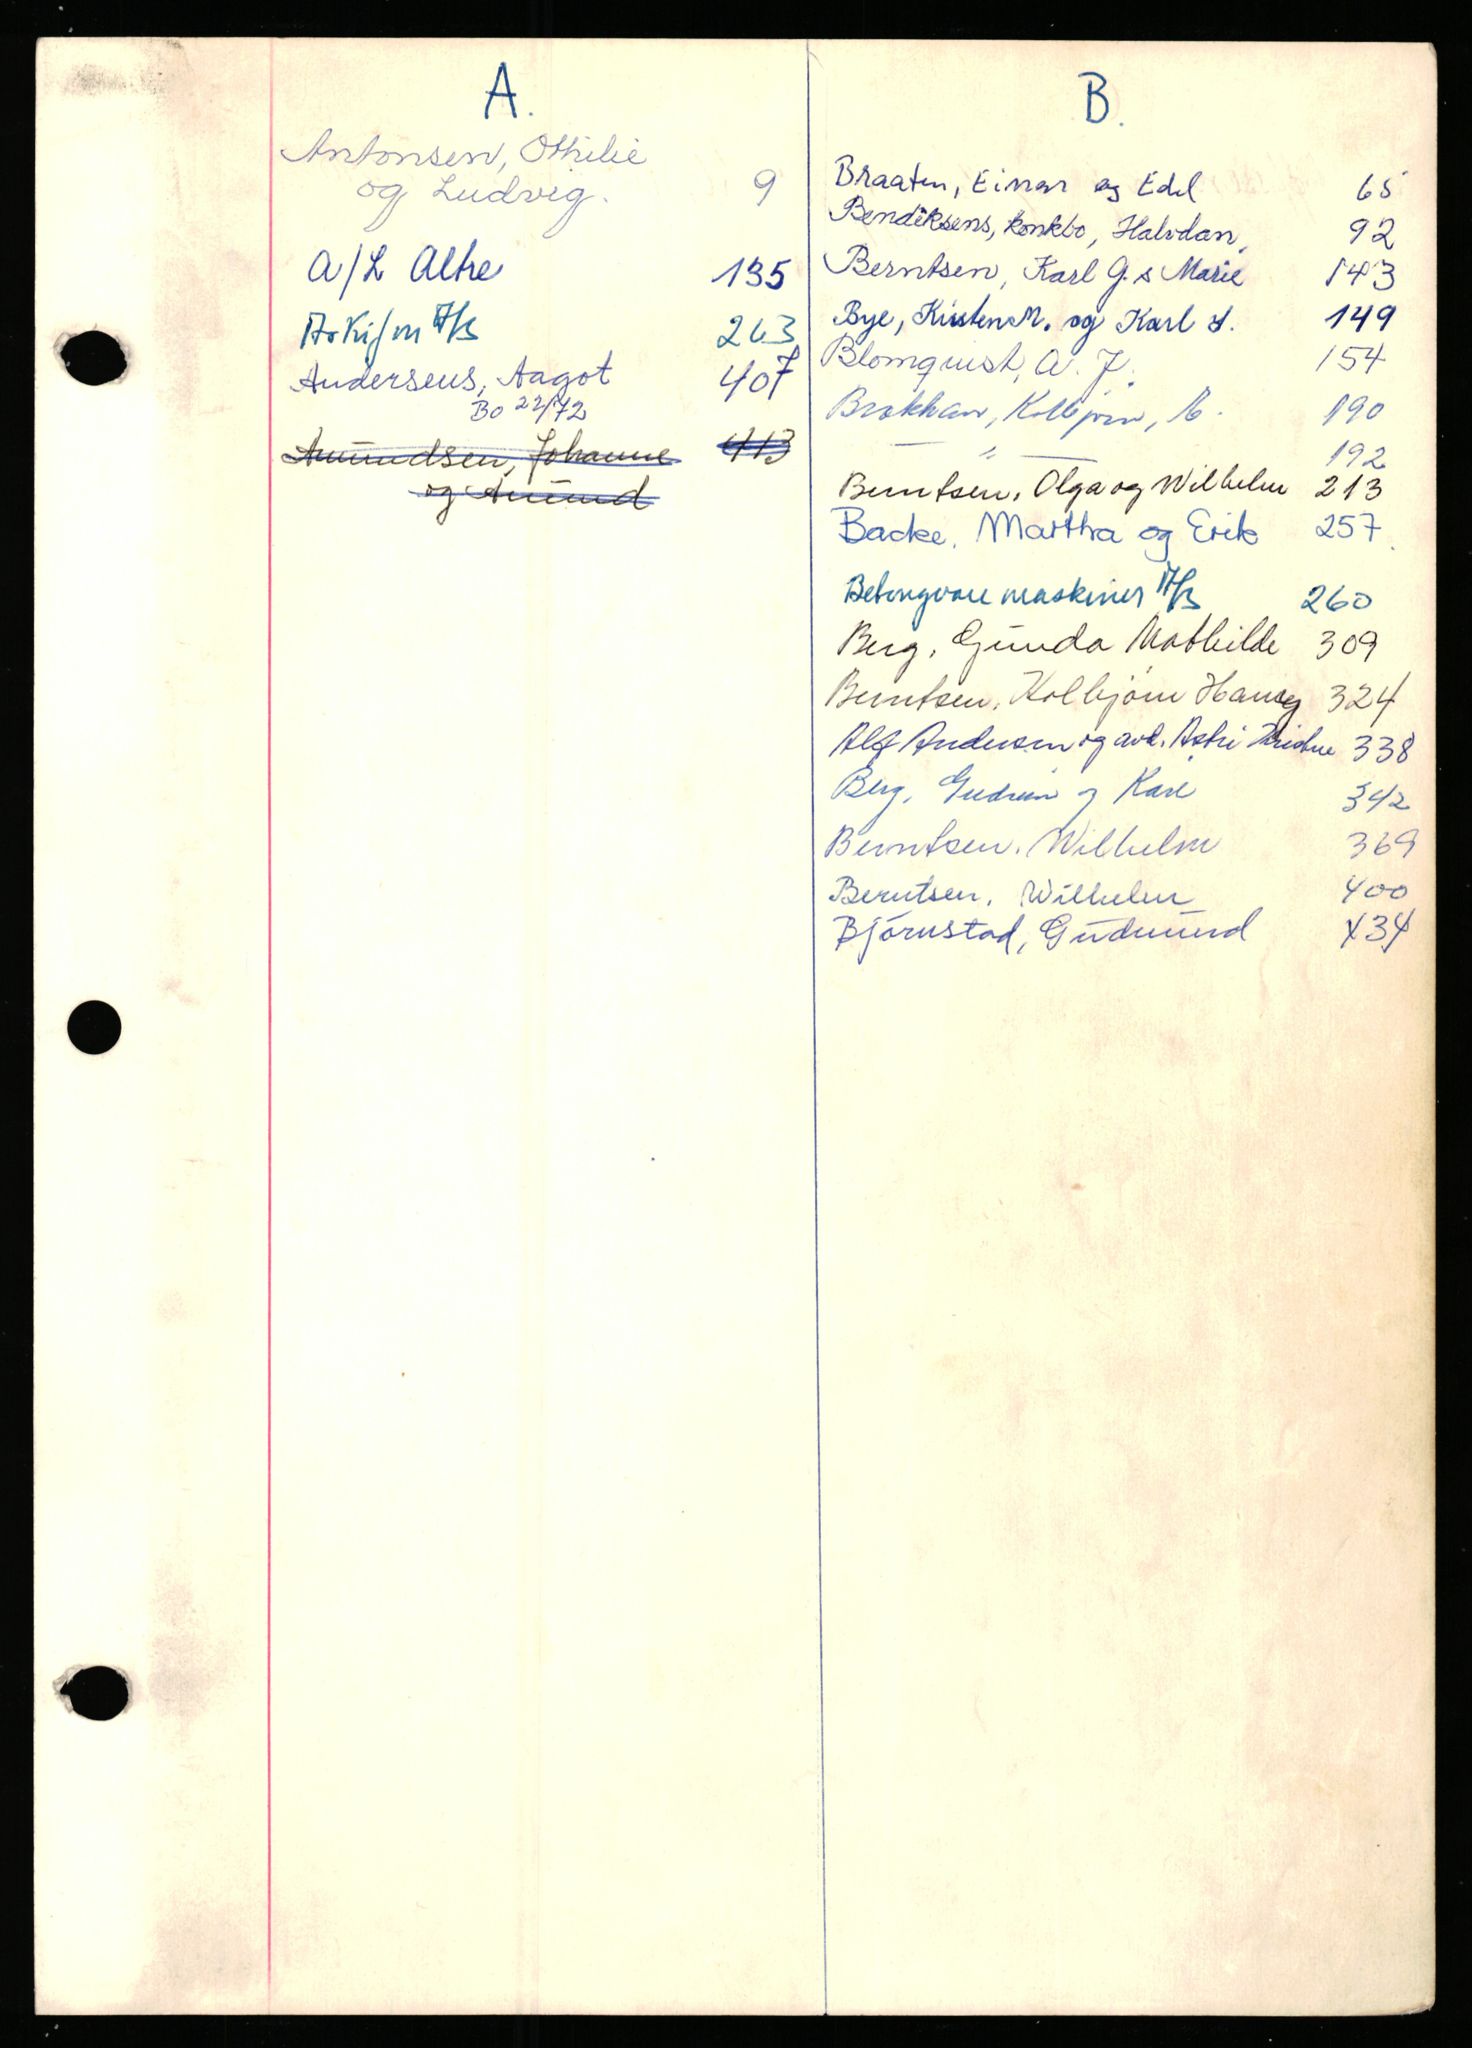 A.
Antonsen, Othilie
og Ludvig. 9
A/L Altre 135
A/S 263
Andersens, Aagot 407
Bo 22/72
Amundsen, Johanne 413
og Amund
B.
Braaten, Einar og Edel 65
Bendiksens, konkbo, Halvdan, 92
Berntsen, Karl G. & Marie 143
Bye, Kirsten M. og Karl S. 149
Blomquist, A. J. 154
Brokhan, Kolbjørn, 190
— " — 192
Berntsen, Olga og Wilhelm 213
Backe, Martha og Erik 257.
Betongvaremaskiner A/S 260
Berg, Gunda Mathilde 309
Berntsen, Kolbjørn Hansen 324
Alf Andersen og avd. Astri Kristine 338
Berg, Gudrun og Kåre 342
Berntsen, Wilhelm 369
Berntsen, Wilhelm 400
Björnstad, Gudmund 434